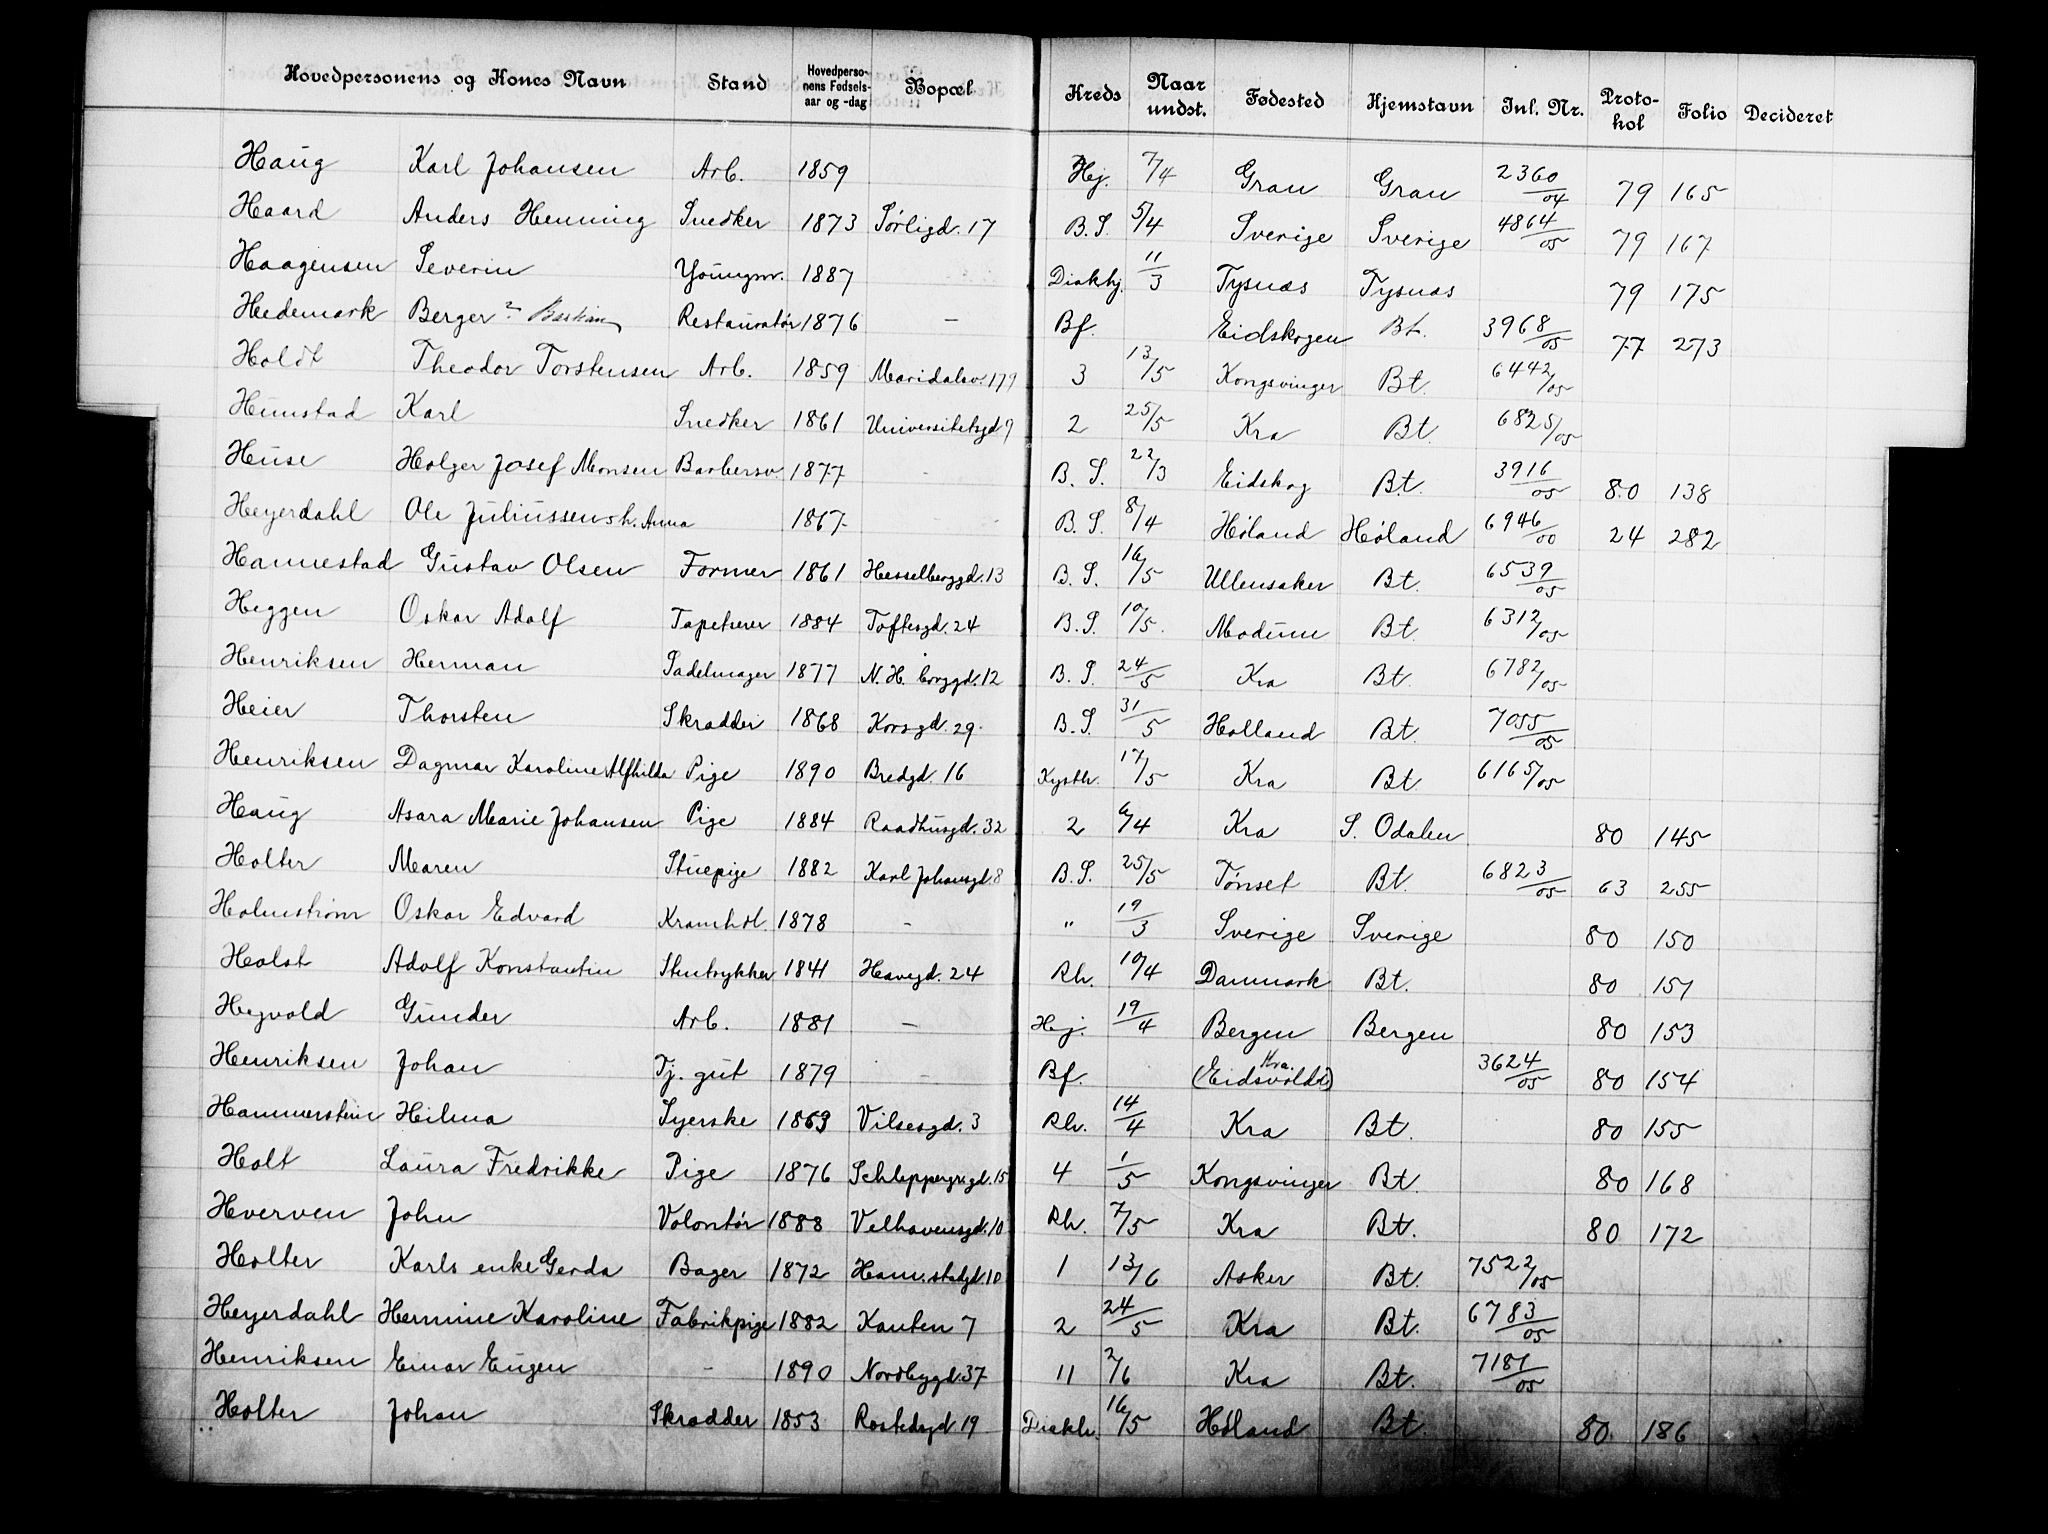 Hovedpersonens og Kones Navn Stand Hovedpersonens Fødselsaar og -dag Bopæl Kreds Naar undst. Fødested Hjemstavn Inl. Nr. Protokol Folio Decideret
Haug Karl Johansen Arb. 1859 Hej. 7/4 Gran Gran 2360/04 79 165
Haard Anders Henning Snedker 1873 Sørligd. 17 B.S. 5/4 Sverige Sverige 4864/05 79 167
Haagensen Severin Youngm. 1887 Diakhj. 11/3 Tysnæs Tysnæs 79 175
Hedemark Berger ? Bastian Restauratør 1876 — Bf. Eidskogen Bt. 3968/05 77 273
Holdt Theodor Torstensen Arb. 1859 Maridalsv. 179 3 13/5 Kongsvinger Bt. 6442/05
Hunstad Karl Snedker 1861 Universitetsgd 9 2 25/5 Kra Bt. 6825/05
Huse Holger Josef Monsen Barbersv. 1877 B.S. 22/3 Eidskog Bt. 3916/05 80 138
Heyerdahl Ole Juliussens h. Anna 1867 B.S. 8/4 Høland Høland 6946/00 24 282
Hannestad Gustav Olsen Former 1861 Hesselberggd. 13 B.S. 16/5 Ullensaker Bt. 6539/05
Heggen Oskar Adolf Tapetserer 1884 Toftesgd. 24 B.S. 10/5. Modum Bt. 6312/05
Henriksen Herman Sadelmager 1877 N.H. 12 B.S. 24/5 Kra Bt. 6782/05
Heier Thorsten Skrædder 1868 Korsgd. 29. B.S. 31/5 Holland Bt. 7055/05
Henriksen Dagmar Karoline Alfhilda Pige 1890 Bredgd. 16 Kysth. 17/5 Kra Bt 6165/05
Haug Asara Marie Johansen Pige 1884 Raadhusgd. 32 2 6/4 Kra S. Odalen 80 145
Holter Maren Stuepige 1882 Karl Johansgd. 8 B.S. 25/5 Tønset Bt. 6823/05 63 255
Holmstrøm Oskar Edvard Kramhdl. 1878 - " 19/3 Sverige Sverige 80 150
Holst Adolf Konstantin Stentrykker 1841 Havegd. 24 Rh. 10/4 Danmark Bt. 80 151
Hegvold Gunder Arb. 1881 — Hej. 19/4 Bergen Bergen 80 153
Henriksen Johan Tj. gut 1879 - Bf. Kra. (Eidsvold) 3624/05 80 154
Hammerstein Hilma Syerske 1869 Vilsesgd. 3 Rh. 14/4 Kra Bt. 80 155
Holt Laura Fredrikke Pige 1876 Schleppegrsgd. 15 4 1/5 Kongsvinger Bt. 80 168
Hverven John Volontør 1888 Velhavensgd. 10 Rh. 7/5 Kra Bt. 80 172
Holter Karls enke Gerda Bager 1872 Ham.stadgd. 10 1 13/6 Asker Bt. 7522/05
Heyerdahl Hermine Karoline Fabrikpige 1882 Kanten 7 2 24/5 Kra Bt. 6783/05
Henriksen Einar Eugen - 1890 Nordbygd. 37 11 2/6 Kra Bt. 7181/05
Holter Johan Skrædder 1853 Rostedsgd 19 Diakh. 16/5 Høland Bt. 80. 186